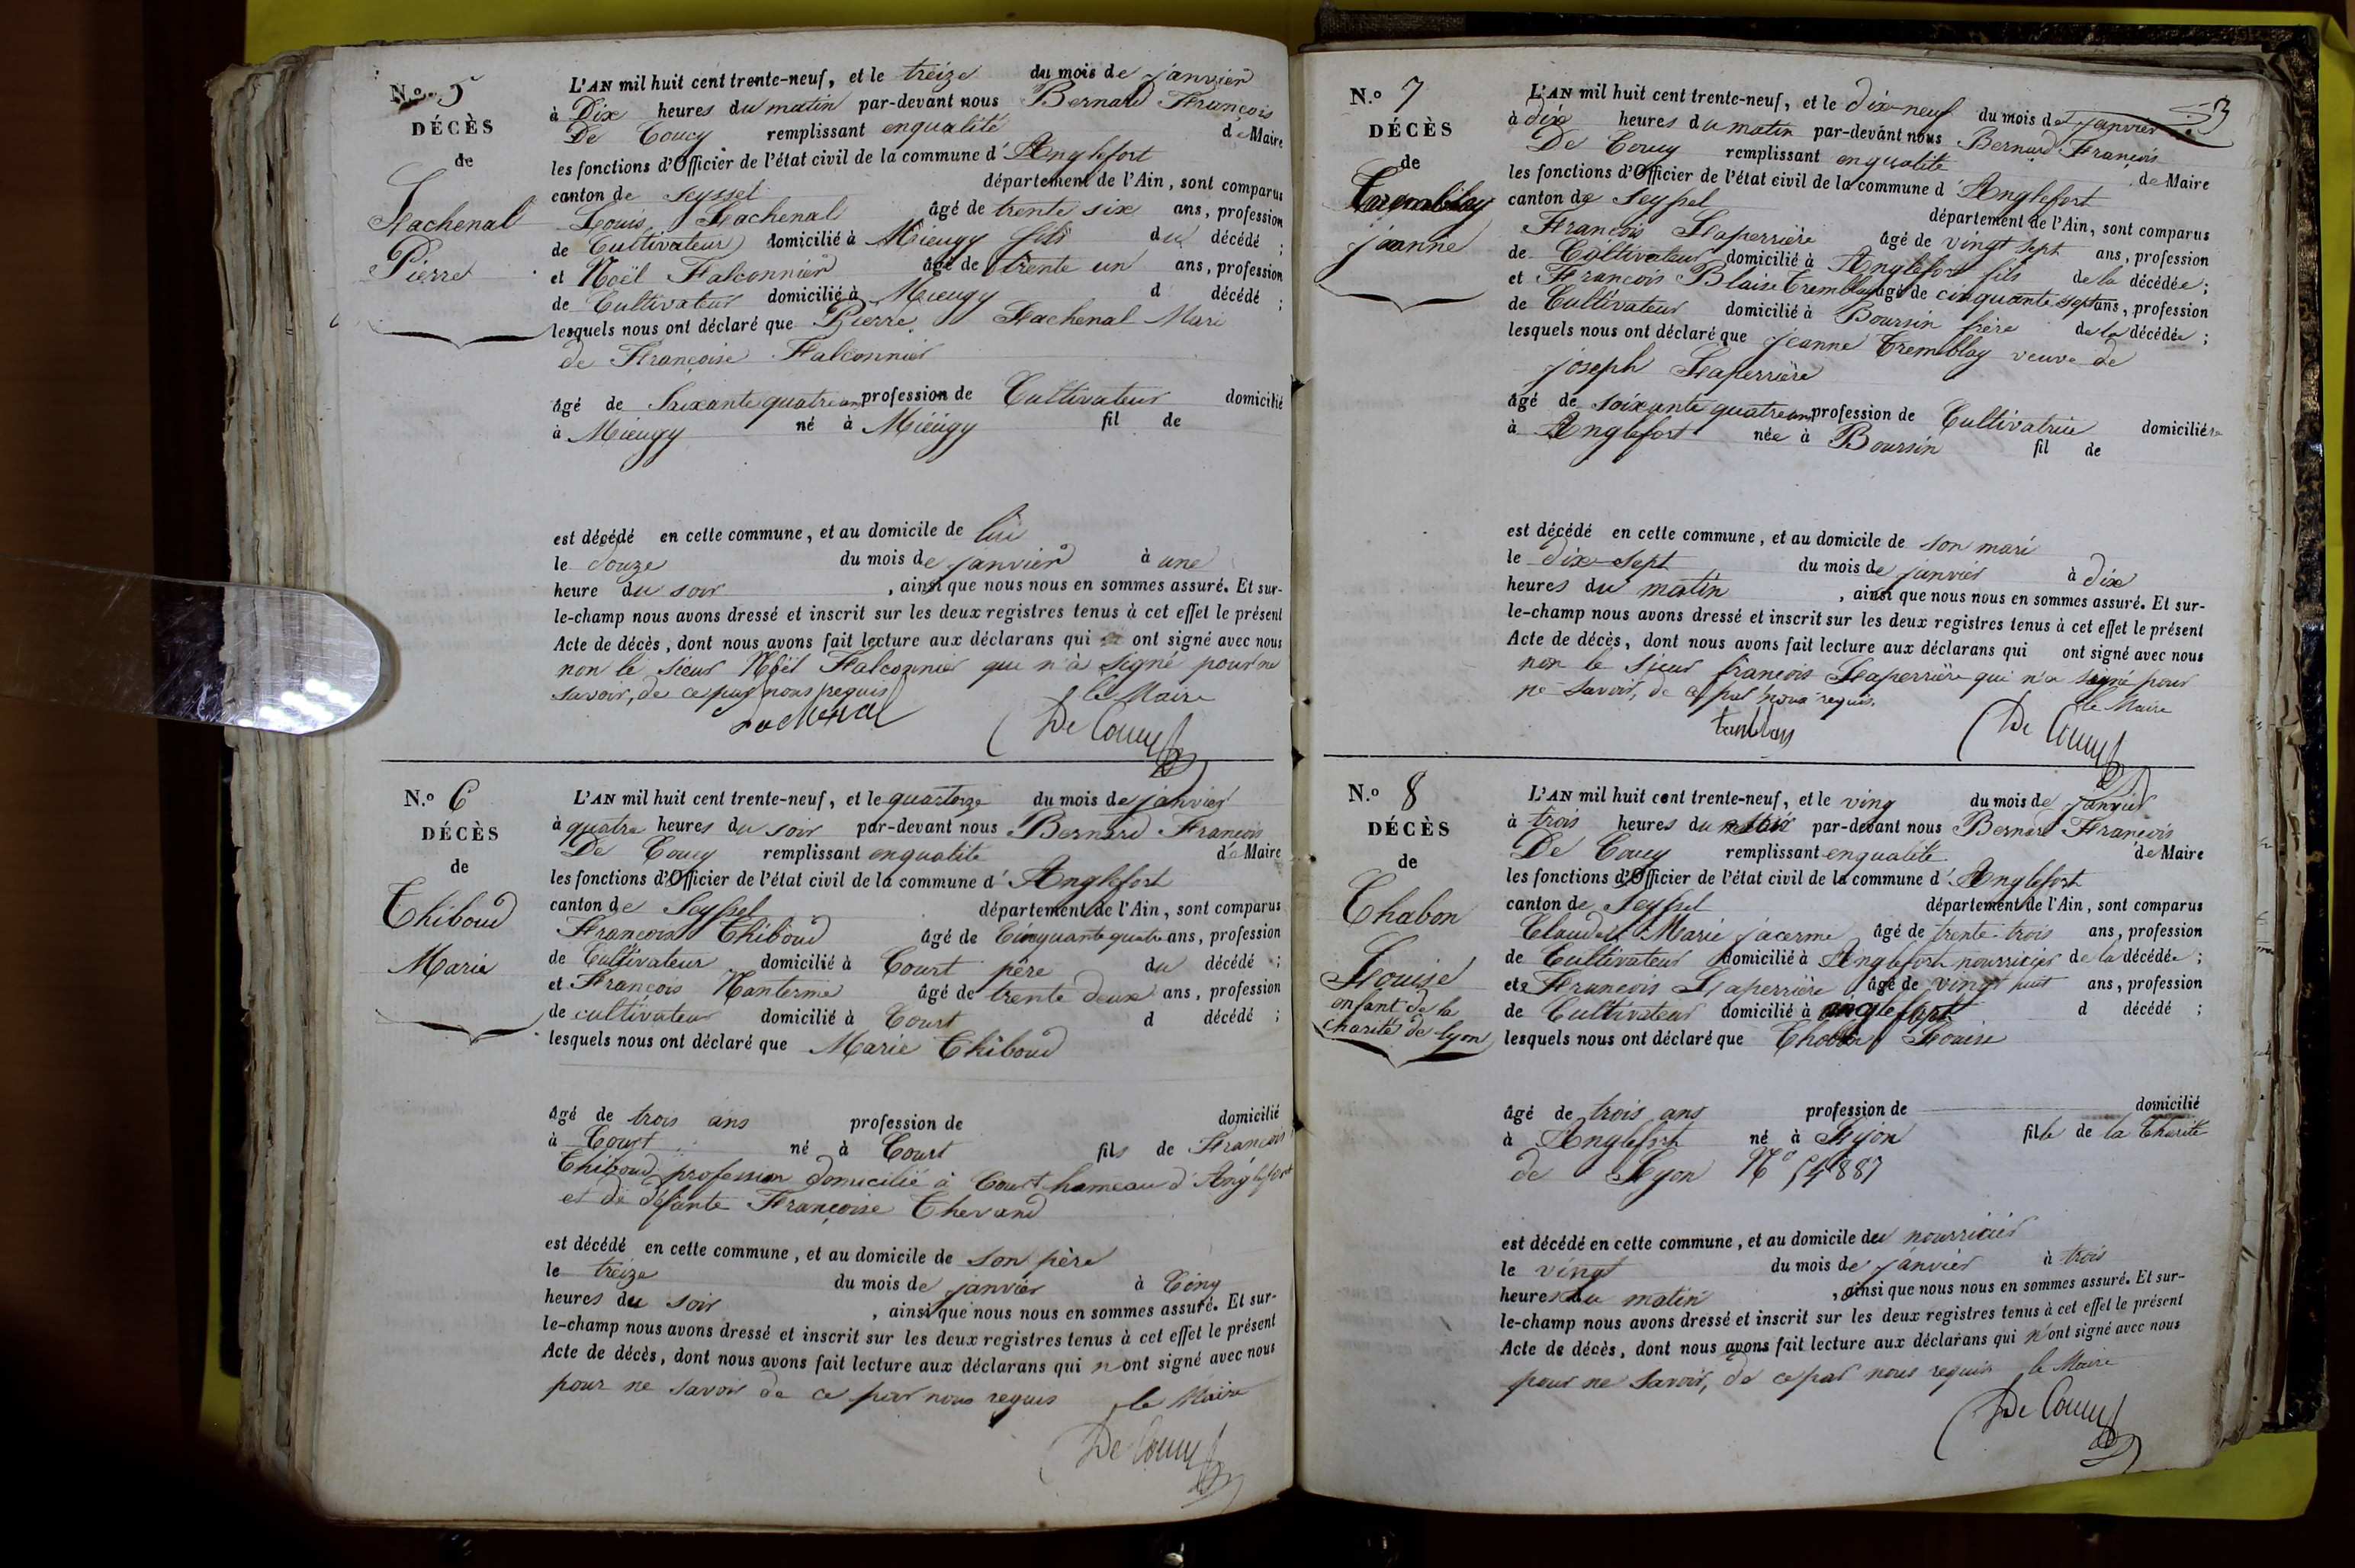 N.o 5
DÉCÈS
de
Lachenal
Pierre
L'AN mil huit cent trente-neuf, et le treize du mois de janvier
à Dix heures du matin par-devant nous Bernard François
De Coucy remplissant enqualité de Maire
les fonctions d'Officier de l'état civil de la commune d' Anglefort
canton de Seyssel département de l'Ain, sont comparus
Louis Lachenal âgé de trente six ans, profession
de Cultivateur domicilié à Mieugy fils du décédé ;
et Noël Falconnier âgé de trente un ans, profession
de Cultivateur domicilié à Mieugy d décédé ;
lesquels nous ont déclaré que Pierre Lachenal Mari
de Françoise Falconnier
âgé de Soixante quatre ans profession de Cultivateur domicilié
à Mieugy né à Mieugy fil de
est décédé en cette commune, et au domicile de lui
le douze du mois de janvier à une
heure du soir , ainsi que nous nous en sommes assuré. Et sur-
le-champ nous avons dressé et inscrit sur les deux registres tenus à cet effet le présent
Acte de décès, dont nous avons fait lecture aux déclarans qui ont signé avec nous
non le sieur Noël Falconnier qui n'à signé pour ne
savoir, de ce par nous requis
Lachenal le Maire
De Coucy
N.o 6
DÉCÈS
de
Thiboud
Marie
L'AN mil huit cent trente-neuf, et le quatorze du mois de janvier
à quatre heures du soir par-devant nous Bernard François
De Coucy remplissant enqualité de Maire
les fonctions d'Officier de l'état civil de la commune d' Anglefort
canton de Seyssel département de l'Ain, sont comparus
François Thiboud âgé de Cinquante quatre ans, profession
de Cultivateur domicilié à Court père du décédé ;
et François Nanterme âgé de trente deux ans, profession
de cultivateur domicilié à Court d décédé ;
lesquels nous ont déclaré que Marie Thiboud
âgé de trois ans profession de domicilié
à Court né à Court fils de François
Thiboud profession domicilié à Court hameau d'Anglefort
et de défunte Françoise Thevand
est décédé en cette commune, et au domicile de son père
le treize du mois de janvier à Cinq
heures du soir , ainsi que nous nous en sommes assuré. Et sur-
le-champ nous avons dressé et inscrit sur les deux registres tenus à cet effet le présent
Acte de décès, dont nous avons fait lecture aux déclarans qui n'ont signé avec nous
pour ne savoir de ce par nous requis le Maire
De Coucy
N.o 7
DÉCÈS
de
Tremblay
jeanne
L'AN mil huit cent trente-neuf, et le dix-neuf du mois de janvier
à dix heures du matin par-devant nous Bernard François
De Coucy remplissant enqualité de Maire
les fonctions d'Officier de l'état civil de la commune d' Anglefort
canton de Seyssel département de l'Ain, sont comparus
François Laperrière âgé de vingt sept ans, profession
de Cultivateur domicilié à Anglefort fils de la décédée ;
et François Blaise Tremblay âgé de cinquante sept ans, profession
de Cultivateur domicilié à Boursin frère de la décédée ;
lesquels nous ont déclaré que jeanne Tremblay veuve de
joseph Laperrière
âgé de soixante quatre ans profession de Cultivatrice domiciliée
à Anglefort née à Boursin fil de
est décédé en cette commune, et au domicile de son mari
le dix-sept du mois de janvier à dix
heures du matin , ainsi que nous nous en sommes assuré. Et sur-
le-champ nous avons dressé et inscrit sur les deux registres tenus à cet effet le présent
Acte de décès, dont nous avons fait lecture aux déclarans qui ont signé avec nous
non le sieur françois Laperrière qui n'a signé pour
ne savoir, de ce par nous requis.
le Maire
De Coucy
N.o 8
DÉCÈS
de
Chabon
Louise
enfant de la
charité de Lyon
L'AN mil huit cent trente-neuf, et le ving du mois de janvier
à trois heures du par-devant nous Bernard François
De Coucy remplissant enqualité de Maire
les fonctions d'Officier de l'état civil de la commune d' Anglefort
canton de Seyssel département de l'Ain, sont comparus
Claude Marie jacerme âgé de trente-trois ans, profession
de Cultivateur domicilié à Anglefort nourricier de la décédée ;
et François Laperrière âgé de vingt huit ans, profession
de Cultivateur domicilié à anglefort d décédé ;
lesquels nous ont déclaré que Chabon Louise
âgé de trois ans profession de domicilié
à Anglefort né à Lyon fille de la Charité
de Lyon No 54887
est décédé en cette commune, et au domicile du nourricier
le vingt du mois de janvier à trois
heures du matin , ainsi que nous nous en sommes assuré. Et sur-
le-champ nous avons dressé et inscrit sur les deux registres tenus à cet effet le présent
Acte de décès, dont nous avons fait lecture aux déclarans qui n'ont signé avec nous
pour ne savoir, de ce par nous requis le Maire
De Coucy